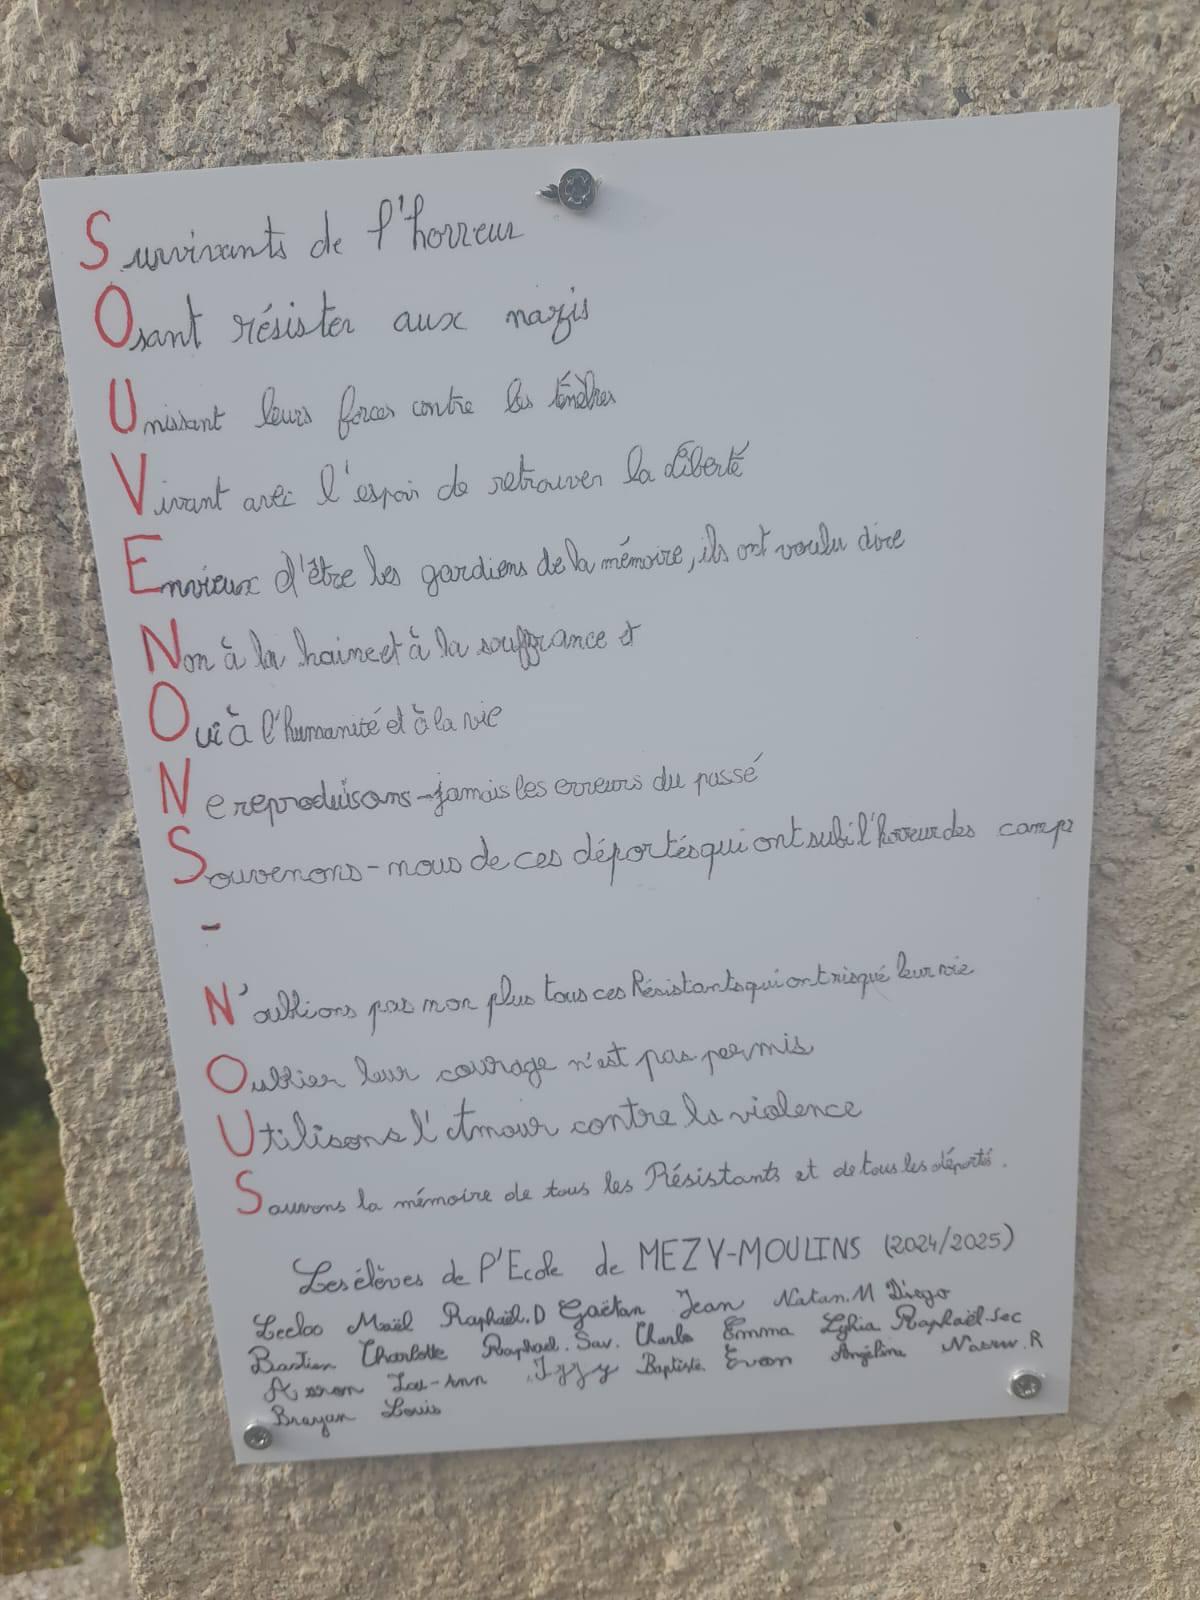 Survivants de l'horreur
Osant résister aux nazis
Unissant leurs forces contre les ténèbres
Vivant avec l'espoir de retrouver la Liberté
Envieux d'être les gardiens de la mémoire, ils ont voulu dire
Non à la haine et à la souffrance et
Oui à l'humanité et à la vie
Ne reproduisons-jamais les erreurs du passé
Souvenons-nous de ces déportés qui ont subi l'horreur des camps
-
N'oublions pas non plus tous ces Résistants qui ont risqué leur vie
Oublier leur courage n'est pas permis
Utilisons l'Amour contre la violence
Sauvons la mémoire de tous les Résistants et de tous les déportés.
Les élèves de l'Ecole de MEZY-MOULINS (2024/2025)
Maël Raphaël.D Gaëtan Jean Natan.M Diego
Bastien Charlotte Raphael.Sav. Charles Emma Raphaël.Sec
Lou-Ann Izzy Baptiste Evan Angélina
Brayan Louis